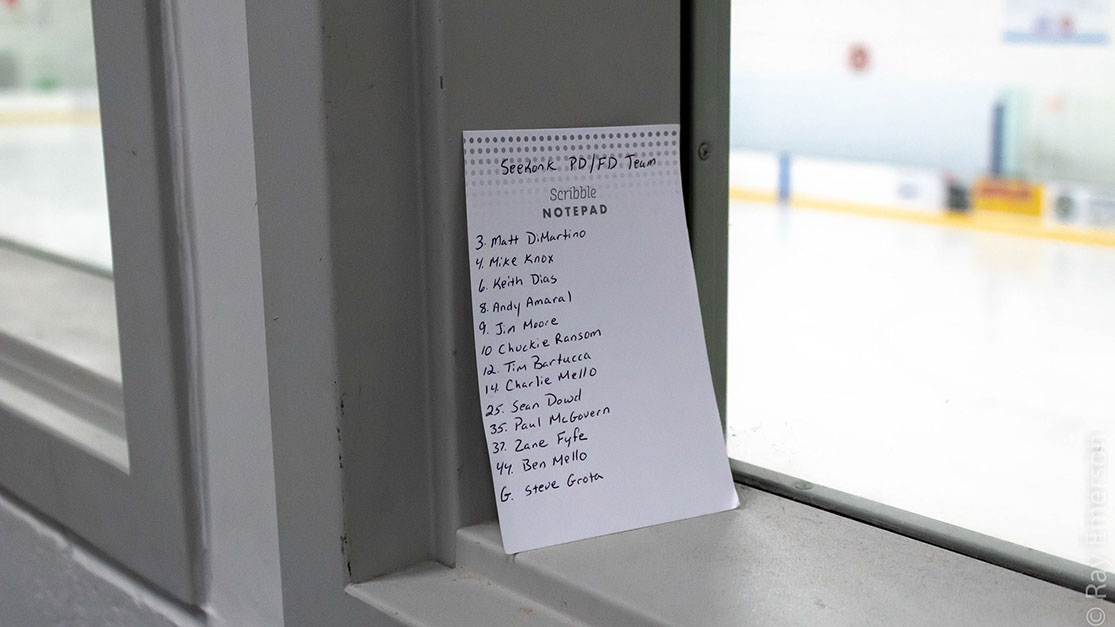 Seekonk PD/FD Team
Scribble
NOTEPAD
3. Matt DiMartino
4. Mike Knox
6. Keith Dias
8. Andy Amaral
9. Jim Moore
10 Chuckie Ransom
12. Tim Bartucca
14. Charlie Mello
25. Sean Dowd
35. Paul McGovern
37. Zane Fyfe
44. Ben Mello
G. Steve Grota
© Ray Emerson